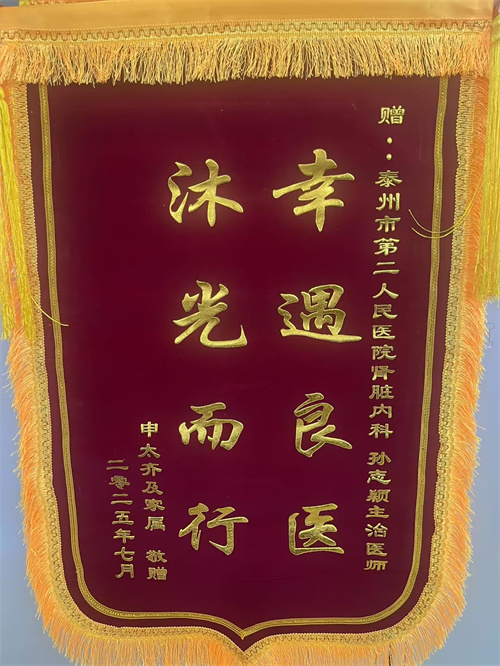 赠：泰州市第二人民医院肾脏内科 孙志颖主治医师
幸遇良医
沐光而行
申太齐及家属 敬赠
二零二五年七月